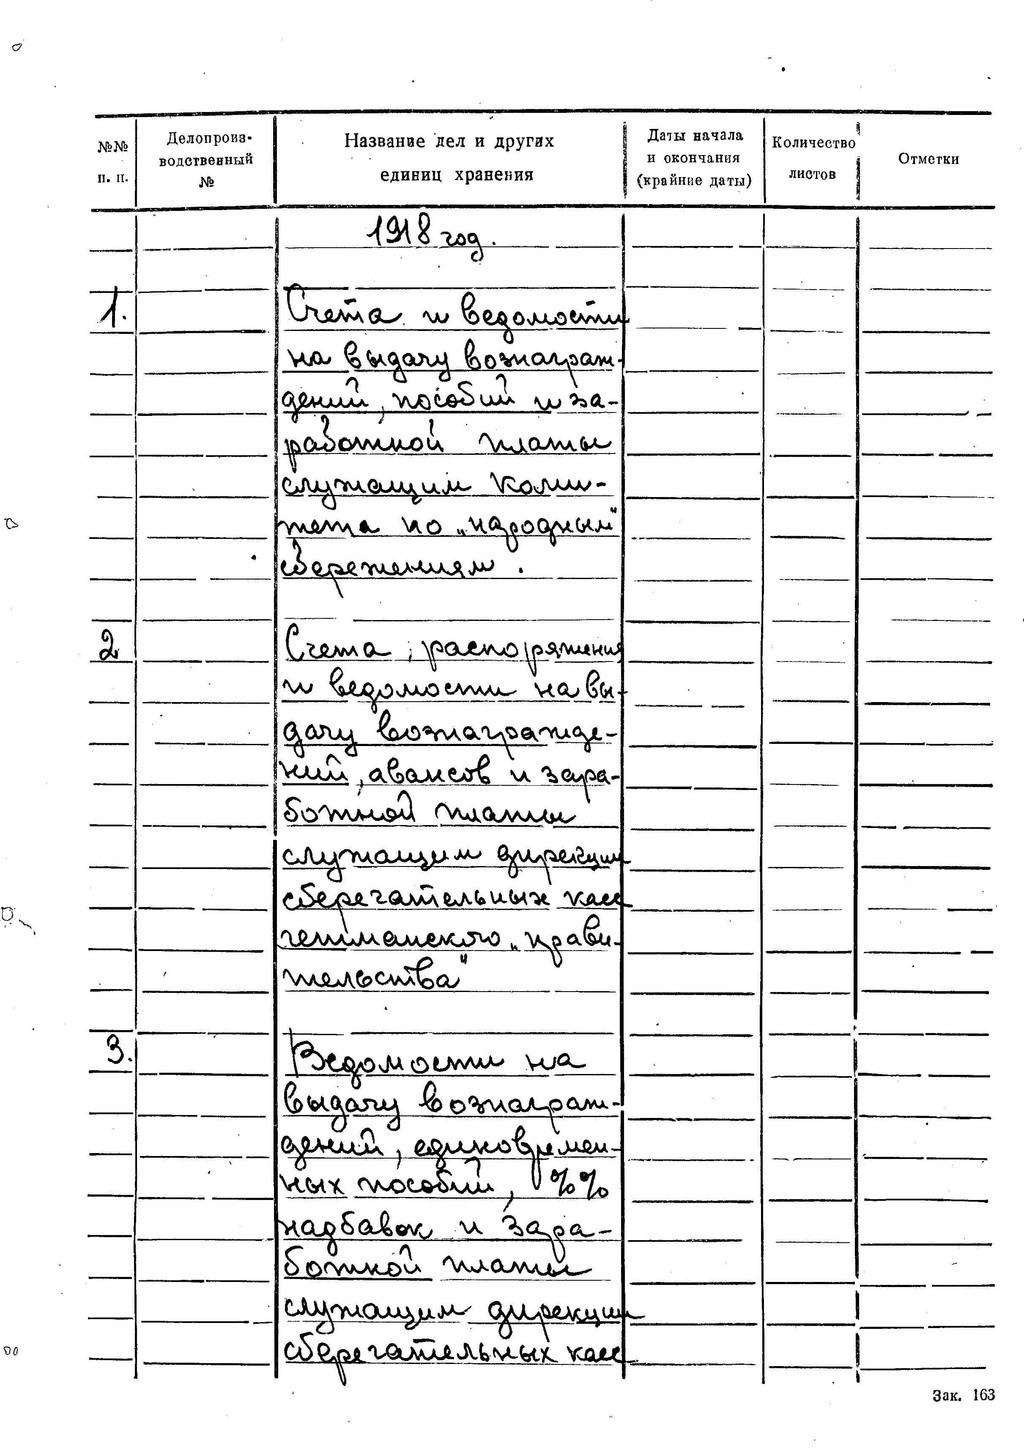 №№ п. п.
Делопроиз-
водственный
№
Название дел и других
единиц хранения
Даты начала
и окончания
(крайние даты)
Количество
листов
Отметки
1918 год.
1.
Счета и ведомости
на выдачу вознаграж-
дений, пособий и за-
работной платы
служащим Коми-
тета по „народным"
сбережениям.
2
Счета, распоряжения
и ведомости на вы-
дачу вознагражде-
ний, авансов и зара-
ботной платы
служащим дирекции
сберегательных касс
гетманского „прави-
тельства"
3.
Ведомости на
выдачу вознаграж-
дений, единовремен-
ных пособий, %%
надбавок и зара-
ботной платы
служащим дирекции
сберегательных касс
Зак. 163